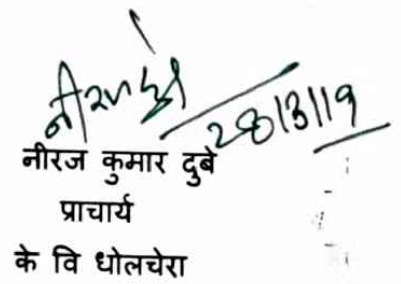 28/3/19
नीरज कुमार दुबे
प्राचार्य
के वि धोलचेरा